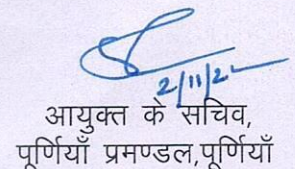 2/11/2
आयुक्त के सचिव,
पूर्णियाँ प्रमण्डल,पूर्णियाँ